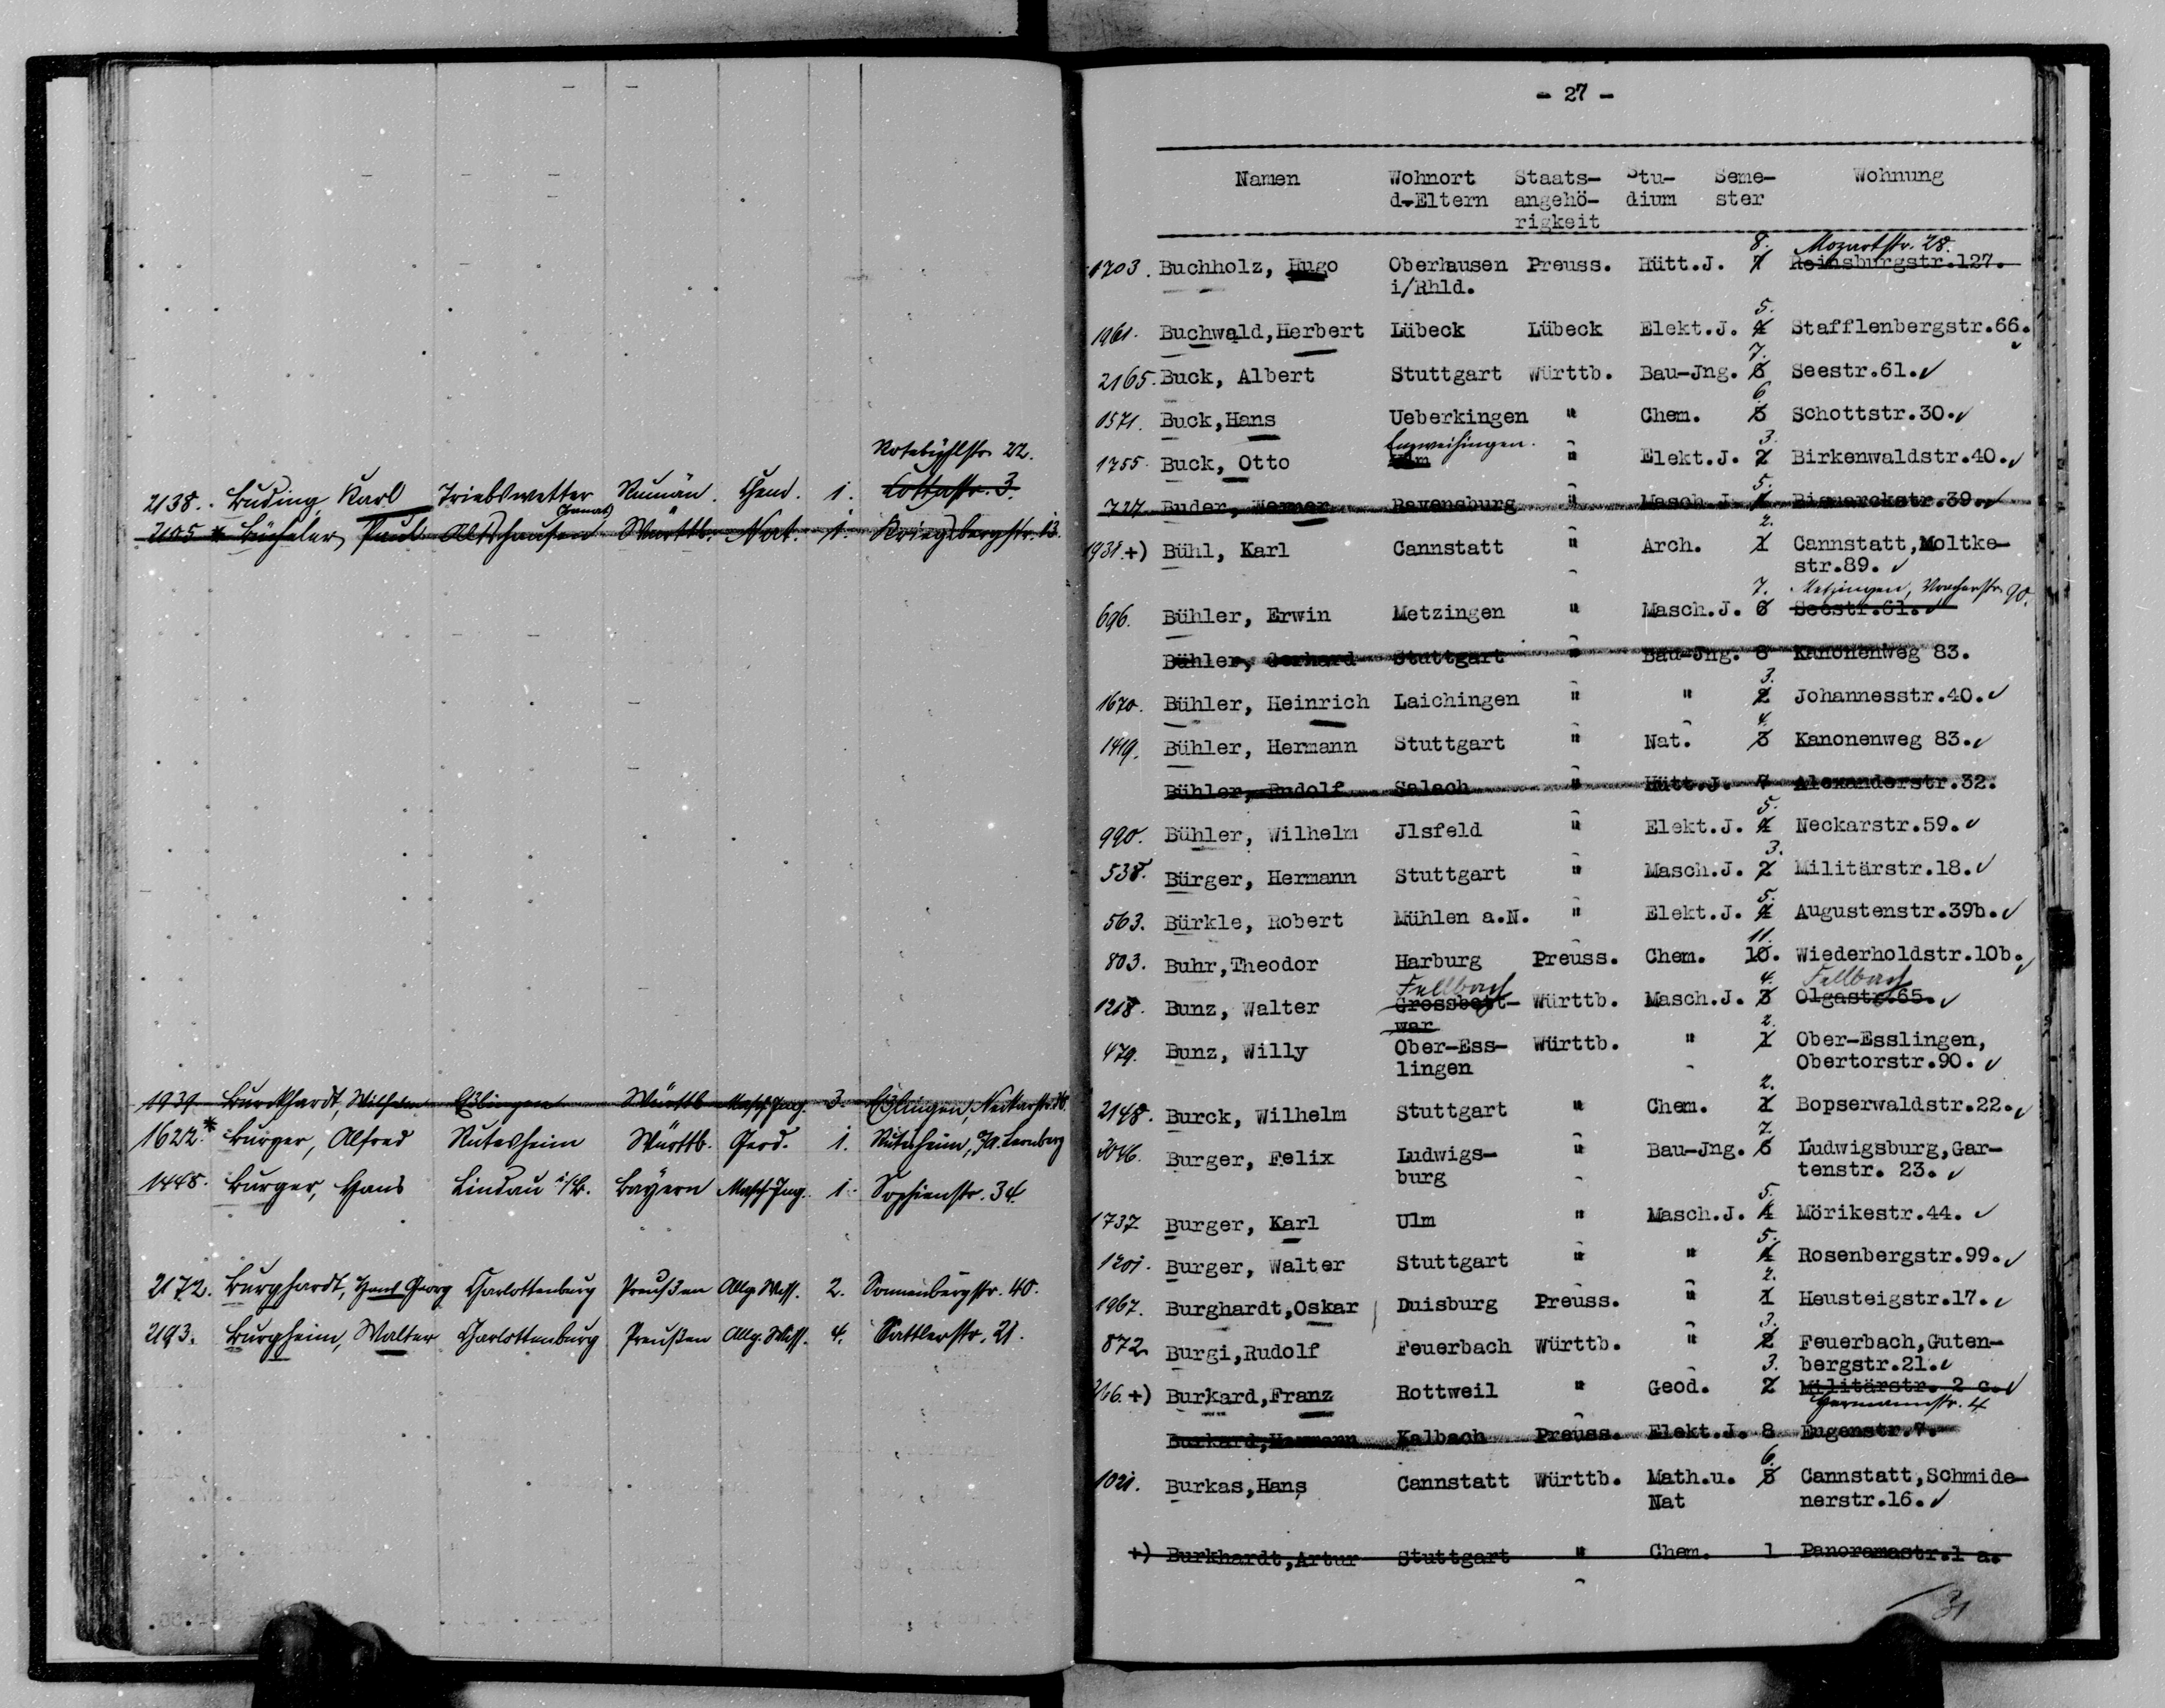 Rotebühlstr. 22.
2138. Buding, Karl Triebswetter Rumän. Chem. 1. Cottastr. 3.
(Banat)
2105 * Bücheler, Paul Altshausen Württb. Nat. 1. Kriegsbergstr. 13.
1939 Burckhardt, Wilhelm Württb. Masch. Ing. 3. Eßlingen, Neckarstr.
1622.* Burger, Alfred Rutesheim Württb. Geod. 1. Rutesheim, O/A. Leonberg
1448. Burger, Hans Lindau i/B. Bayern Masch. Ing. 1. Sophienstr. 34.
2172. Burghardt, Hans Georg Charlottenburg Preußen Allg. Wiss. 2. Sonnenbergstr. 40.
2193. Burgheim, Walter Charlottenburg Preußen Allg. Wiss. 4. Sattlerstr. 21.
- 27 -
Namen Wohnort Staats- Stu- Seme- Wohnung
d.Eltern angehö- dium ster
rigkeit
8. Mozartstr. 28.
1703. Buchholz, Hugo Oberhausen Preuss. Hütt.J. 7 Reinsburgstr.127.
i/Rhld.
5.
1961. Buchwald,Herbert Lübeck Lübeck Elekt.J. 4 Stafflenbergstr.66.
7.
2165. Buck, Albert Stuttgart Württb. Bau-Jng. 6 Seestr.61.
6.
1571. Buck,Hans Ueberkingen " Chem. 5 Schottstr.30.
Enzweihingen. 3.
1755. Buck, Otto Ulm " Elekt.J. 2 Birkenwaldstr.40.
5.
727 Buder, Werner Ravensburg " Masch.J. 4 Bismarckstr.39.
2.
1938.+) Bühl, Karl Cannstatt " Arch. 1 Cannstatt,Moltke-
str.89.
7. Metzingen, Uracherstr. 90.
696. Bühler, Erwin Metzingen " Masch.J. 6 Seestr.61.
Bühler, Gerhard Stuttgart " Bau-Jng. 8 Kanonenweg 83.
3.
1670. Bühler, Heinrich Laichingen " " 2 Johannesstr.40.
4.
1419. Bühler, Hermann Stuttgart " Nat. 3 Kanonenweg 83.
Bühler, Rudolf Salach " Hütt.J. 7 Alexanderstr.32.
5.
990. Bühler, Wilhelm Jlsfeld " Elekt.J. 4 Neckarstr.59.
3.
538. Bürger, Hermann Stuttgart " Masch.J. 2 Militärstr.18.
5.
563. Bürkle, Robert Mühlen a.N. " Elekt.J. 4 Augustenstr.39b.
11.
803. Buhr,Theodor Harburg Preuss. Chem. 10. Wiederholdstr.10b.
Fellbach 4. Fellbach
1218. Bunz, Walter Grossbott- Württb. Masch.J. 3 Olgastr.65.
war 2.
479. Bunz, Willy Ober-Ess- Württb. " 1 Ober-Esslingen,
lingen Obertorstr.90.
2.
2148. Burck, Wilhelm Stuttgart " Chem. 1 Bopserwaldstr.22.
7.
2046. Burger, Felix Ludwigs- " Bau-Jng. 6 Ludwigsburg,Gar-
burg tenstr. 23.
5.
1737 Burger, Karl Ulm " Masch.J. 4 Mörikestr.44.
5.
1201. Burger, Walter Stuttgart " " 4 Rosenbergstr.99.
2.
1967. Burghardt,Oskar Duisburg Preuss. " 1 Heusteigstr.17.
3.
872 Burgi,Rudolf Feuerbach Württb. " 2 Feuerbach,Guten-
3. bergstr.21.
266.+) Burkard,Franz Rottweil " Geod. 2 Militärstr. 2 c.
Hermannstr. 4
Burkard,Hermann Kalbach Preuss. Elekt.J. 8 Eugenstr.7.
6.
1021. Burkas,Hans Cannstatt Württb. Math.u. 5 Cannstatt,Schmide-
Nat nerstr.16.
+) Burkhardt,Artur Stuttgart " Chem. 1 Panoramastr.1 a.
31